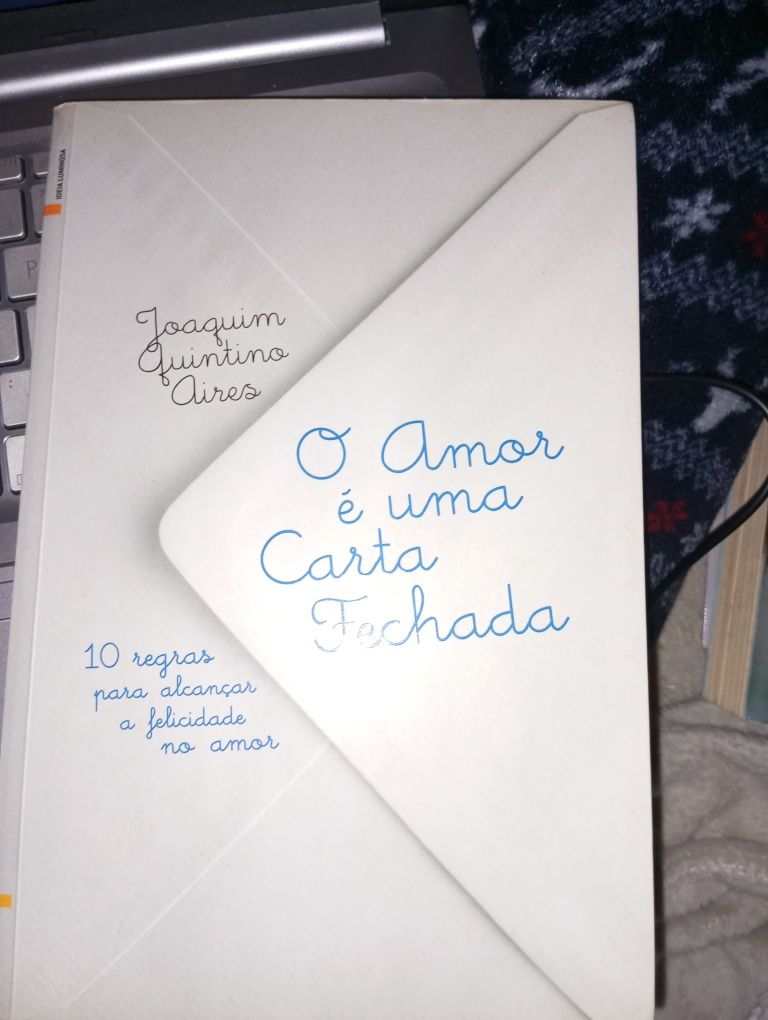 IDEIA LUMINOSA
Joaquim
Quintino
Aires
O Amor
é uma
Carta
Fechada
10 regras
para alcançar
a felicidade
no amor
P